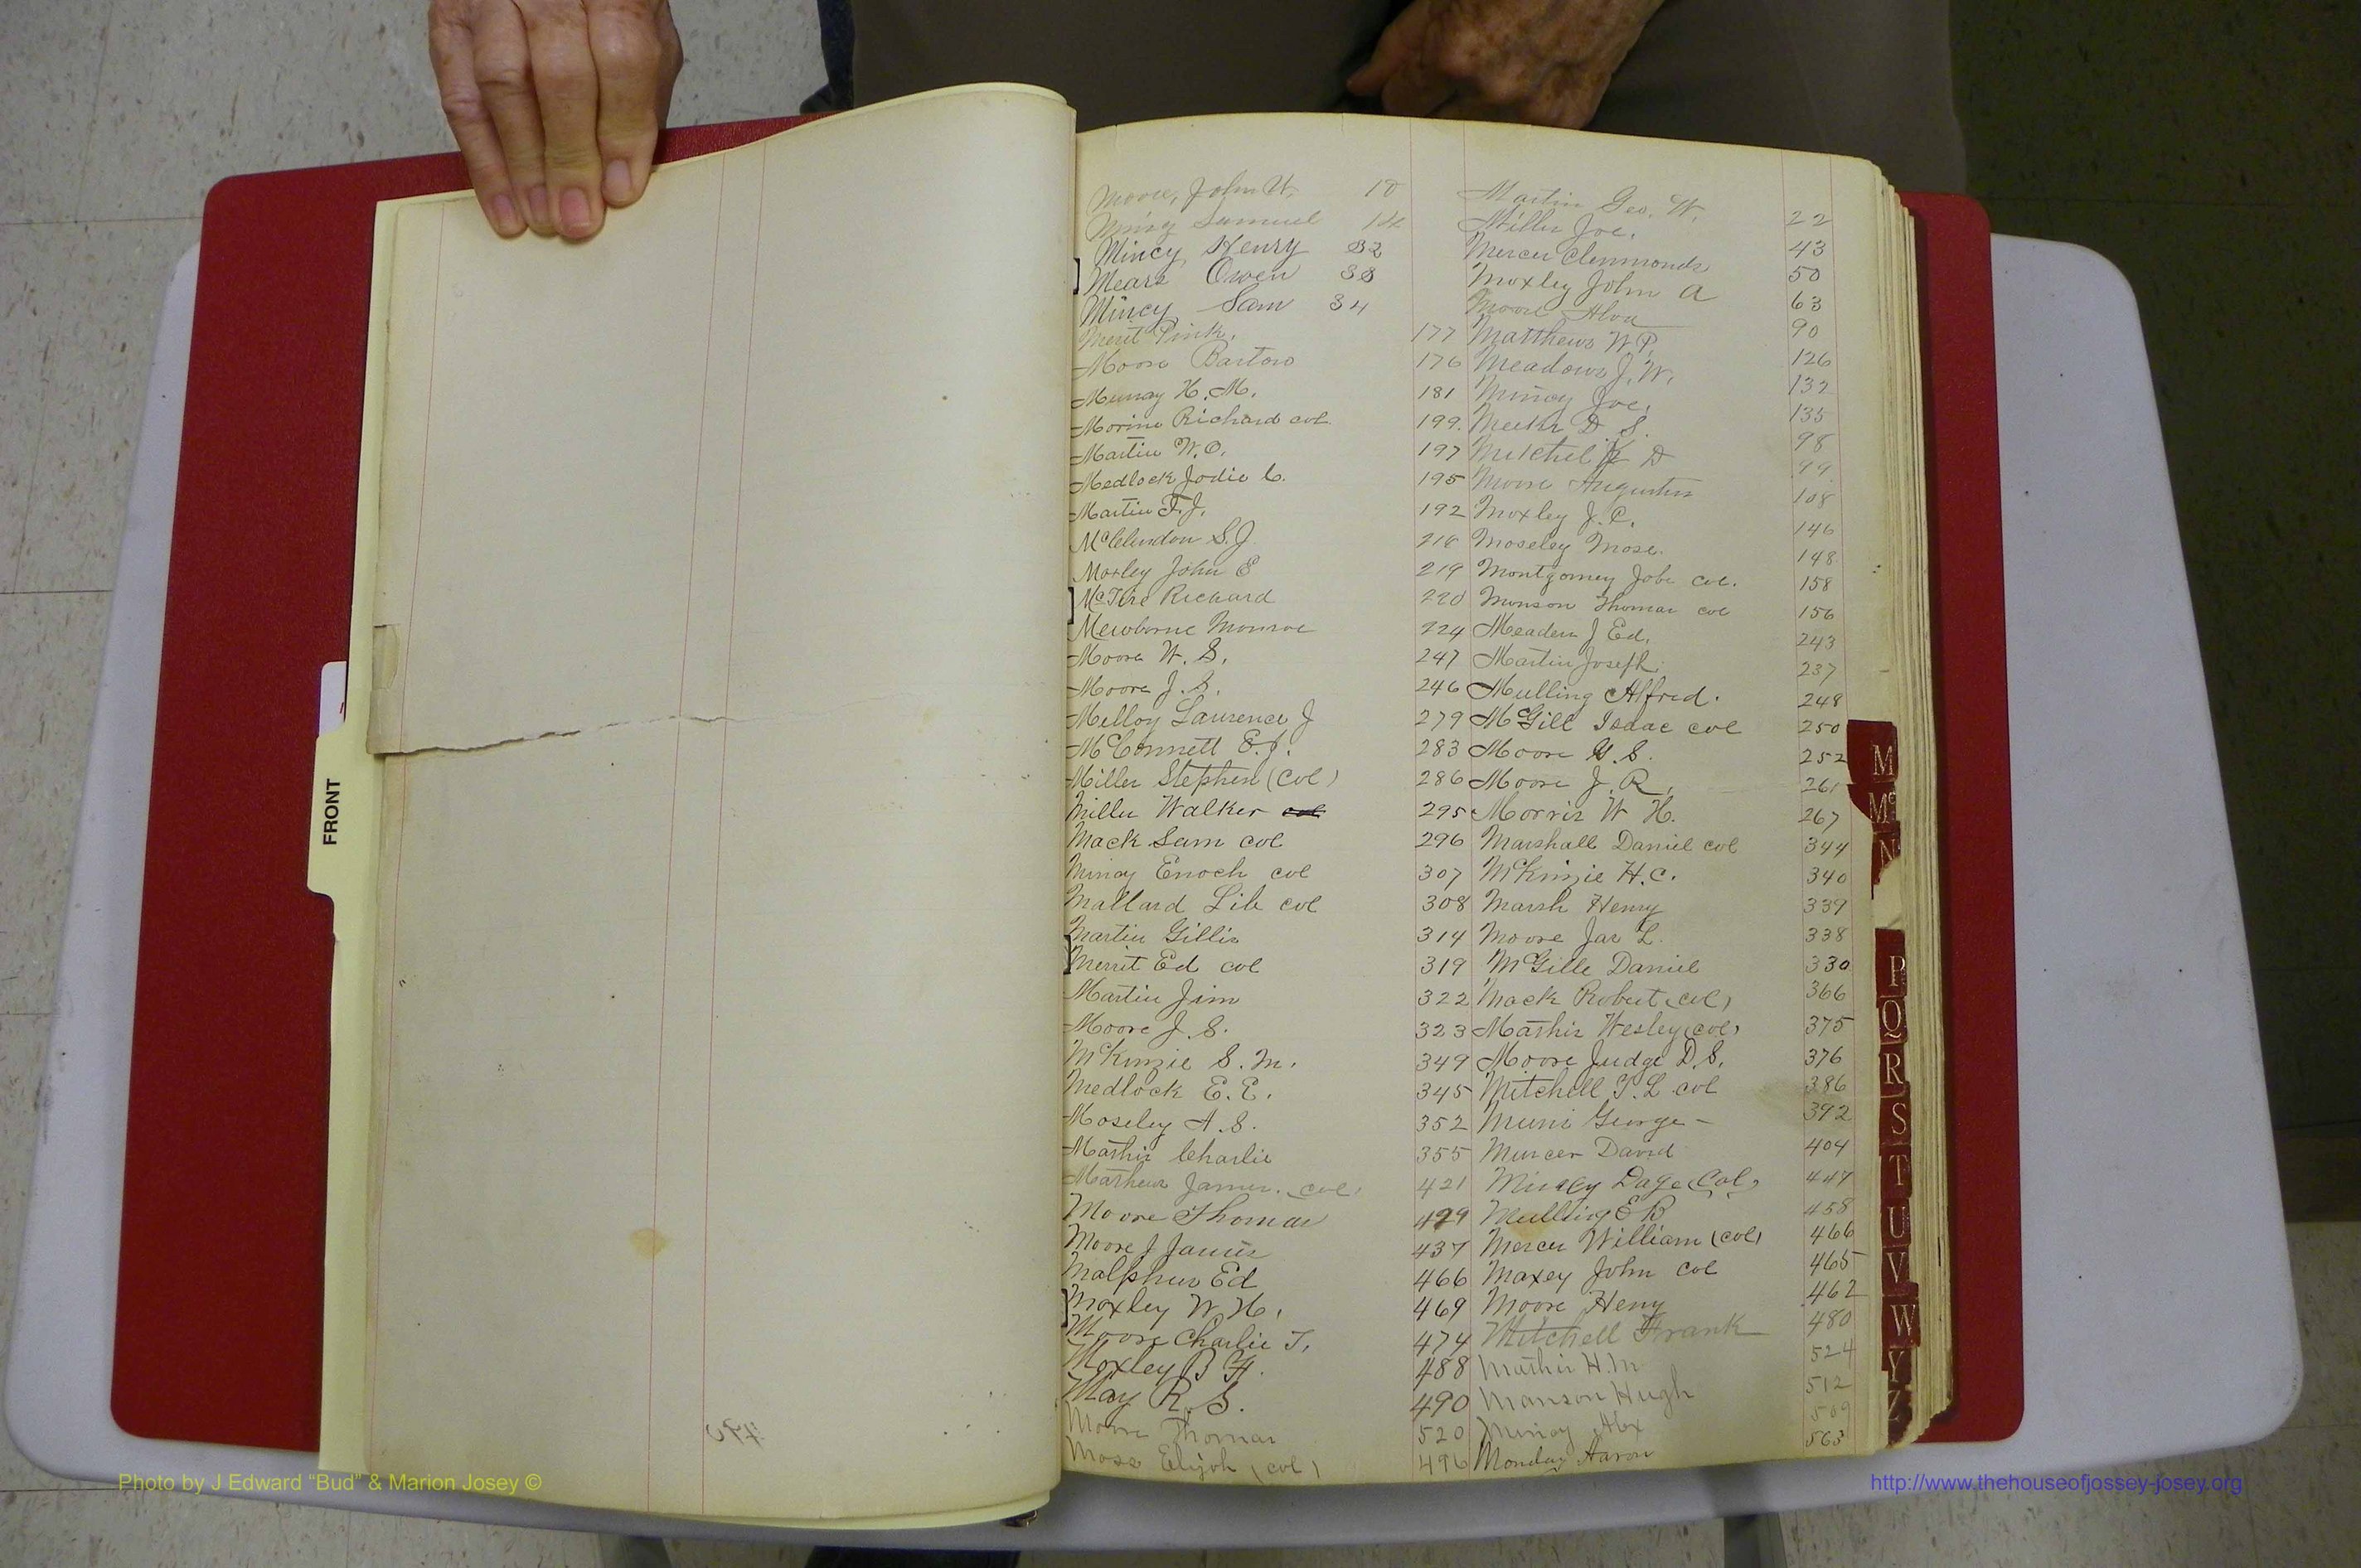 Moore, John W. 18
Mincy Samuel 14
Mincy Henry 32
Mears Owen 33
Mincy Sam 34
Merit Pink. 177
Moore Bartow 176
Murray H. M. 181
Morine Richard col 199.
Martin W. O. 197
Medlock Jodie C. 195
Martin F. J. 192
McClendon S. J. 216
Moxley John E 219
McTire Richard 220
Mewborne Monroe 224
Moore W. S. 247
Moore J. S. 246
Melloy Laurence J 279
McConnett E. J. 283
Miller Stephen (Col) 286
Miller Walker col 295
Mack Sam col 296
Mincy Enoch col 307
Mallard Lib col 308
Martin Gillis 314
Merrit Ed col 319
Martin Jim 322
Moore J. S. 323
McKinzie S. M. 349
Medlock E. E. 345
Moseley A. S. 352
Mathis Charlie 355
James. col, 421
Moore Thomas 429
Moore J James 437
Malphus Ed 466
Moxley W. H. 469
Moore Charlie T. 474
Moxley B F. 488
May R. S. 490
Moore Thomas 520
Moss Elijoh (col) 496
Martin Geo. W. 22
Miller Joe. 43
Mercer Clemmonds 50
Moxley John A 63
Moore Alva 90
Matthews W P. 126
Meadows J. W. 132
Mincy Joe. 135
Meeks D S. 98
Mitchel D 99
Moore Augustus 108
Moxley J. C. 146
Moseley Mose. 148
Montgomey Jobe col. 158
Monson Thomas col 156
Meaders J Ed. 243
Martin Joseph. 237
Mulling Alfred. 248
McGill Isaac col 250
Moore S. 252
Moore J. R. 261
Morris W H. 267
Marshall Daniel col 344
McKinzie H. C. 340
Marsh Henry 339
Moore Jas L. 338
McGille Daniel 330
Mack Robert (col) 366
Mathis Wesley (col) 375
Moore Judge D. S. 376
Mitchell T. L col 386
George - 392
Murcer David 404
Mincy Dage (Col) 447
Mulling E B 458
Mercer William (col) 466
Maxey John col 465
Moore Heny 462
Mitchell Frank 480
Mathis H. M 524
Manson Hugh 512
Mincy Alex 509
Monday Aaron 563
FRONT
M
Mc
N
P
Q
R
S
T
U
V
W
Y
Z
Photo by J Edward “Bud” & Marion Josey ©
http://www.thehouseofjossey-josey.org